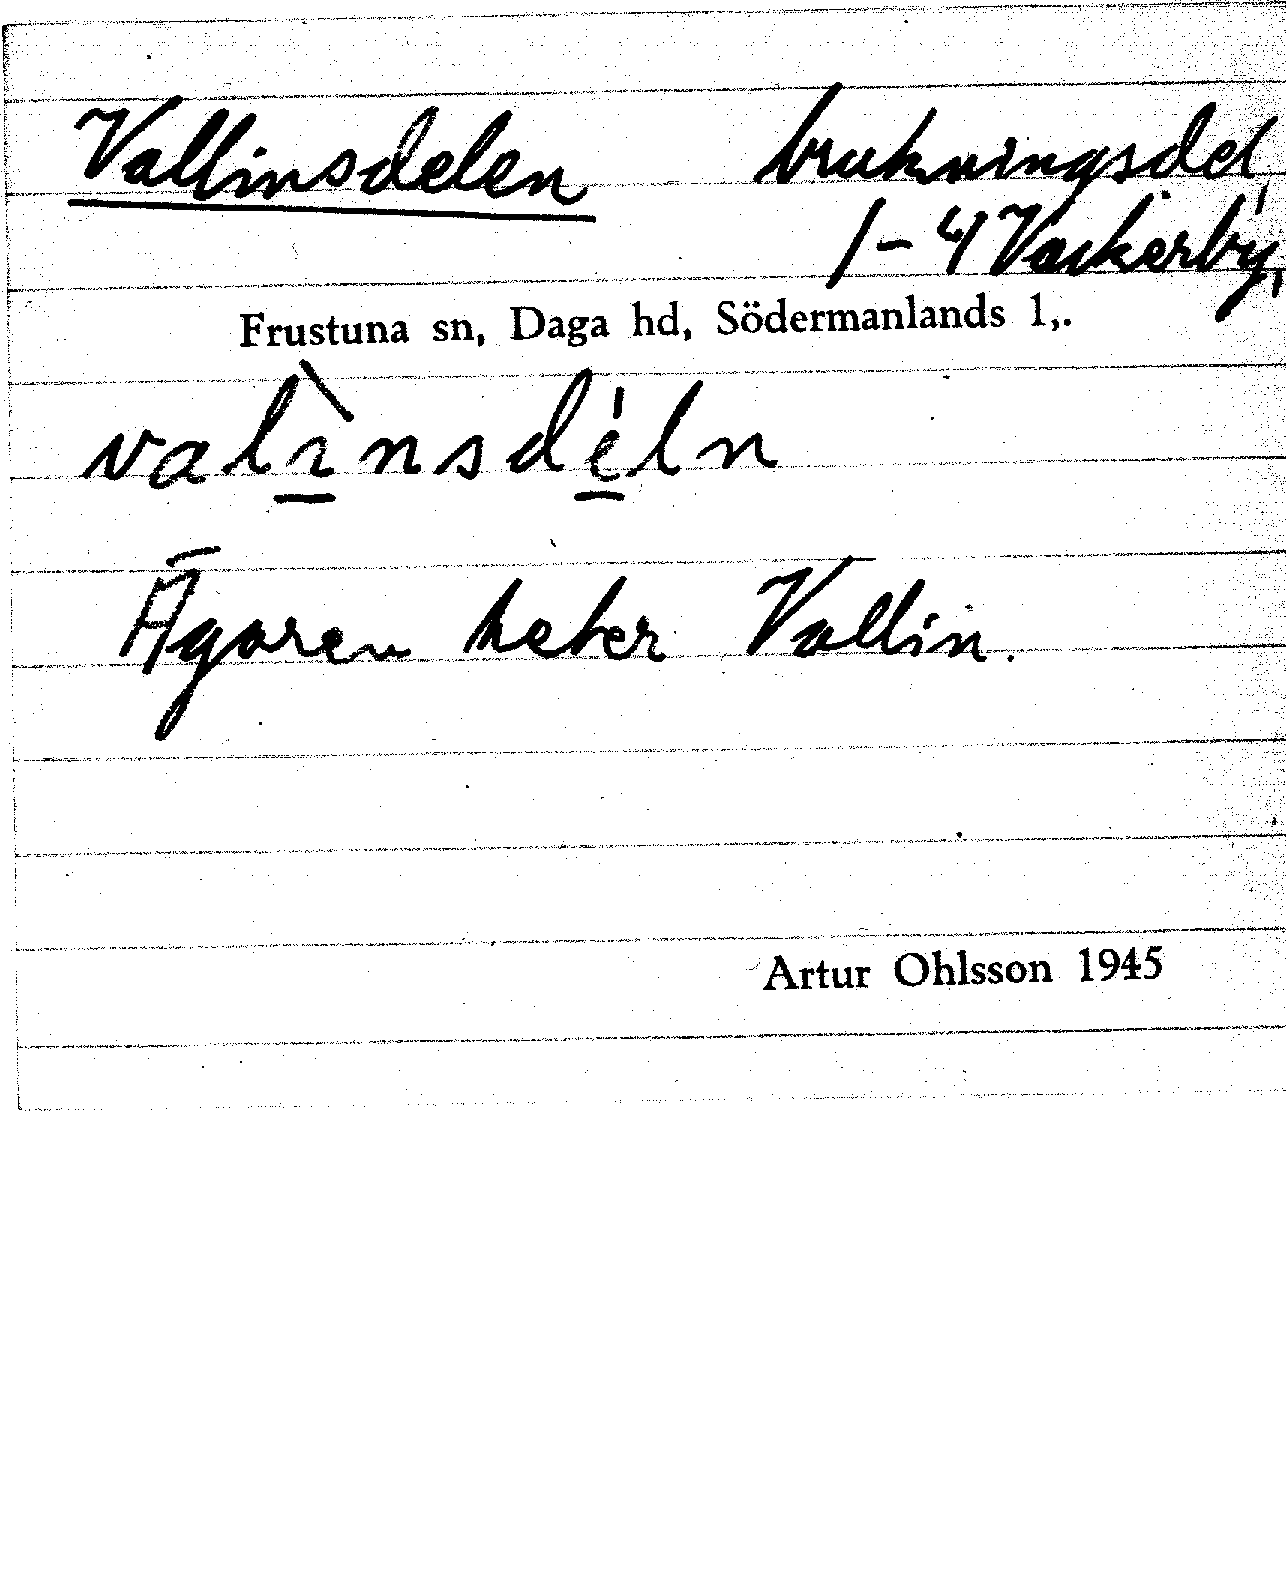 Vallinsdelen brukningsdel,
1-4 Vackerby,
Frustuna sn, Daga hd, Södermanlands l,.
valı̱̀nsdé̱ln
Ägaren heter Vallin.
Artur Ohlsson 1945